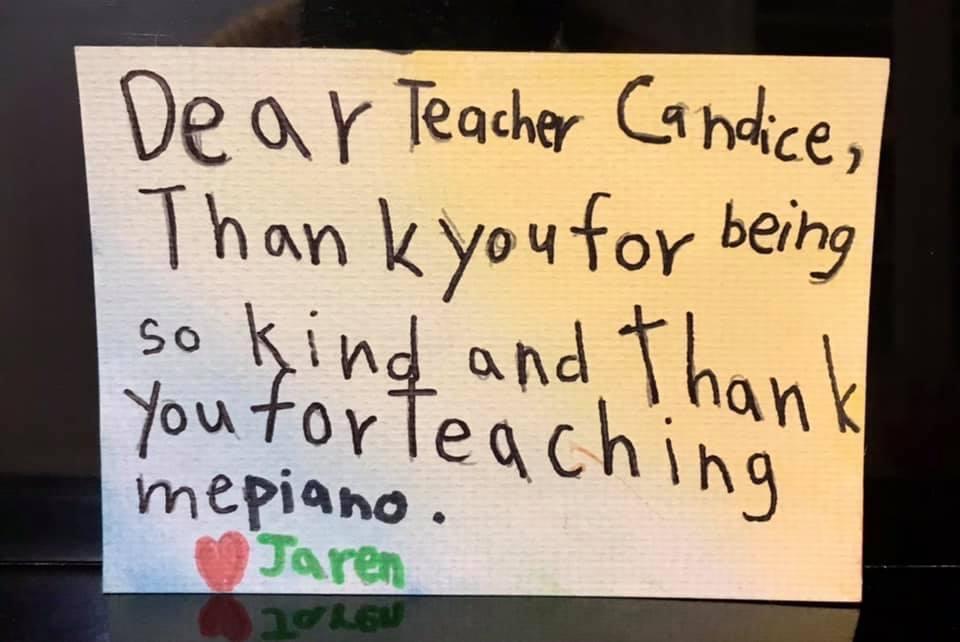 Dear Teacher Candice,
Thank you for being
so kind and Thank
you for Teaching
me piano.
Jaren